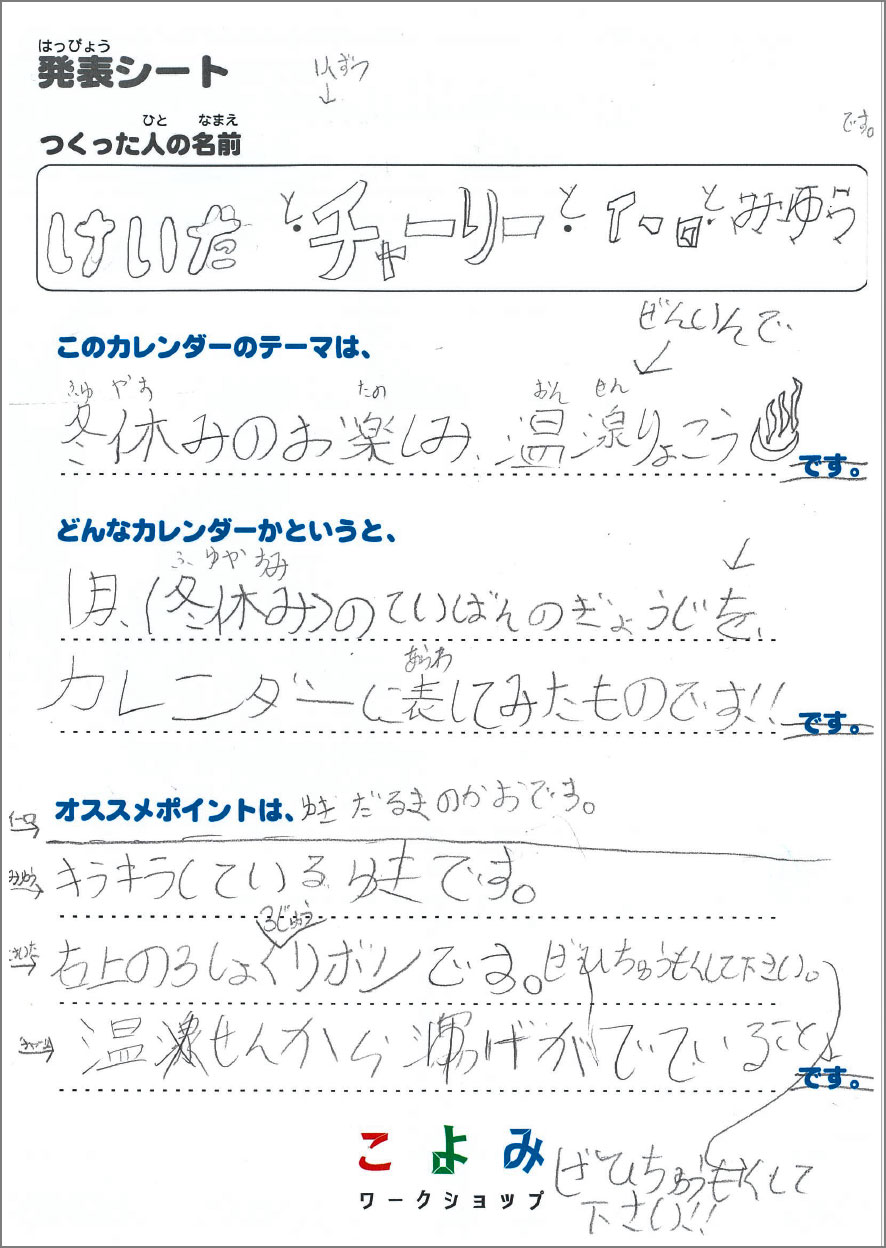 はっぴょう
発表シート
1人ずつ
↓
です。
ひと なまえ
つくった人の名前
けいた と・チャーリー と・イーロ と・みゆう
このカレンダーのテーマは、
ぜんいんで
ふゆ やす たの おん せん
冬休みのお楽しみ、温泉りょこう♨
です。
どんなカレンダーかというと、
ふゆやすみ
1月、(冬休み)のていばんのぎょうじを、
あらわ
カレンダーに表してみたものです!!
です。
オススメポイントは、ゆきだるまのかおです。
イーロ
みゆう
キラキラしているゆきです。
3じゅう
けいた
右上の3しょくリボンです。ぜひちゅうもくして下さい。
チャーリー
温せんからゆげがでていること
です。
こよみ
ワークショップ
ぜひちゅうもくして
下さい!!